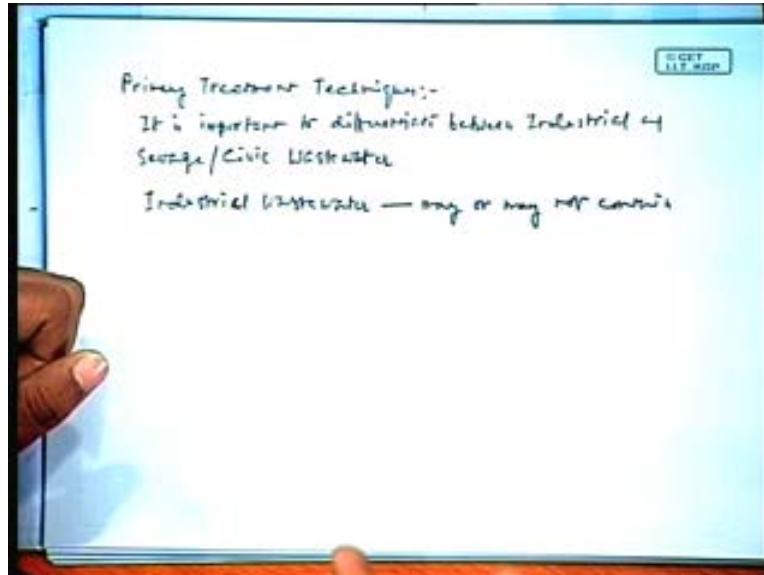 © CET
I.I.T. KGP
Primary Treatment Techniques:-
It is important to differentiate between Industrial and
Sewage/Civic Wastewater
Industrial Wastewater — may or may not contain